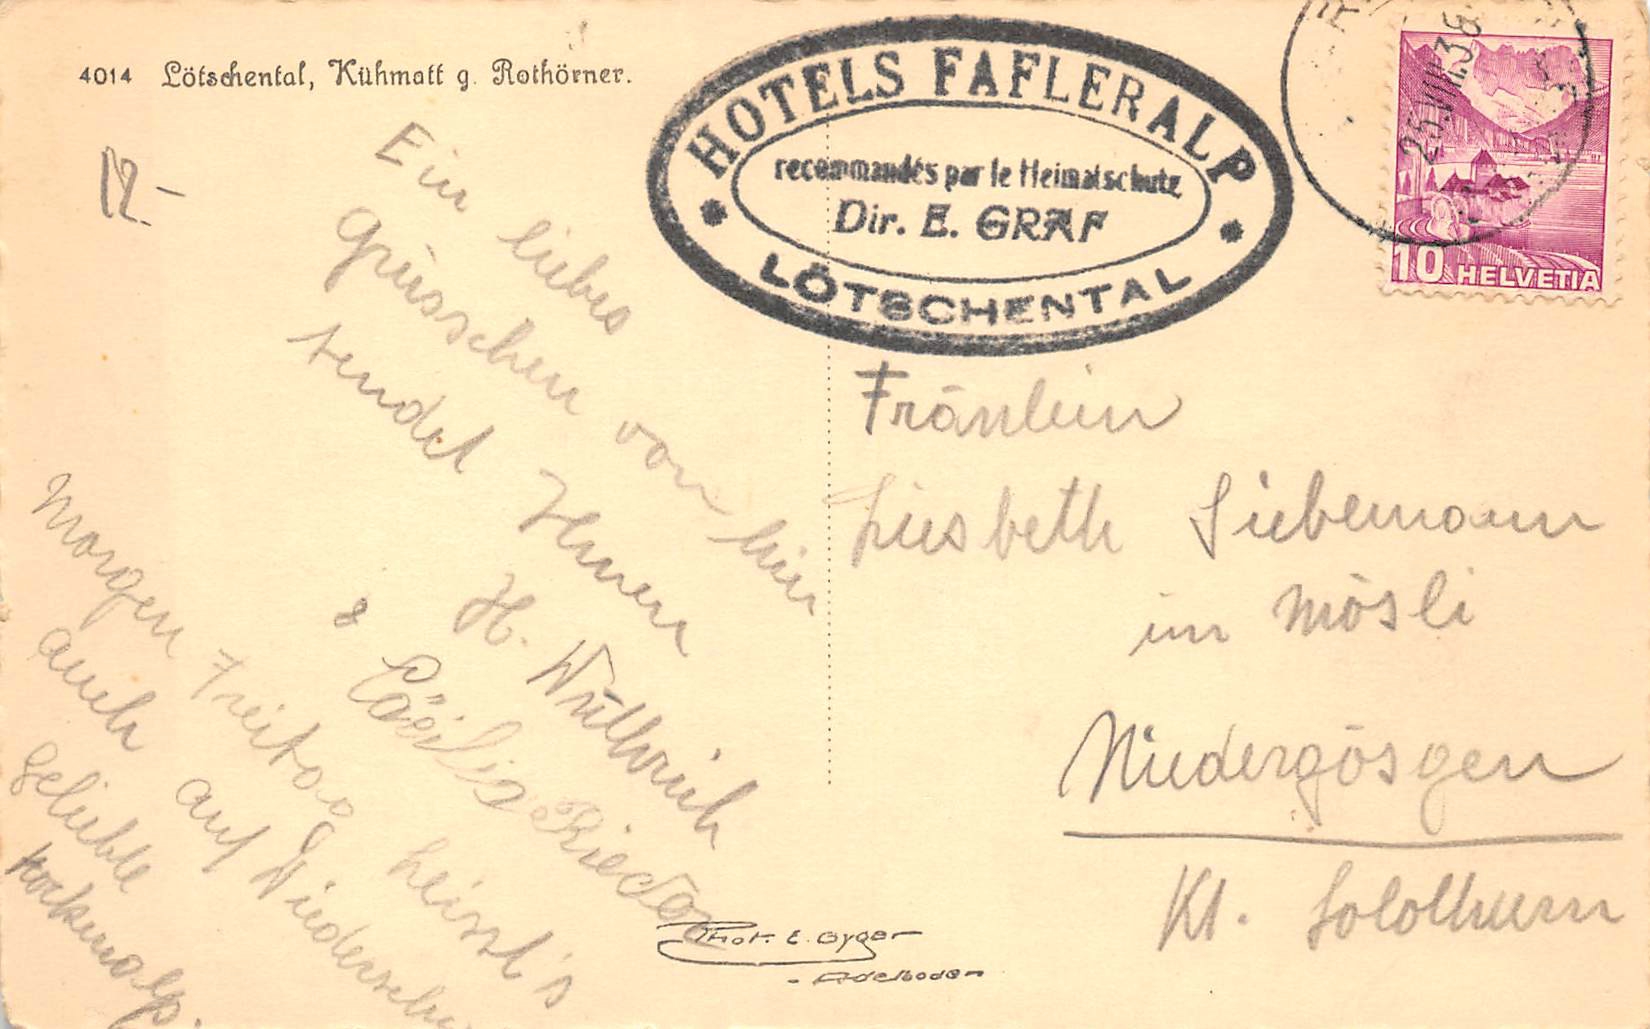 4014 Lötschental, Kühmatt g. Rothörner.
HOTELS FAFLERALP
recommandés par le Heimatschutz
Dir. E. GRAF
LÖTSCHENTAL
25.VIII.38
10 HELVETIA
12.-
Ein liebes
Grüsschen von hier
sendet Ihnen
H. Wüthrich
& Cäcilia Rieder
Morgen Freitag heisst's
auch auf Wiedersehn
geliebte
Fräulein
Liesbeth Siebenmann
im Mösli
Niedergösgen
Kt. Solothurn
Phot. E. Gyger
- Adelboden -